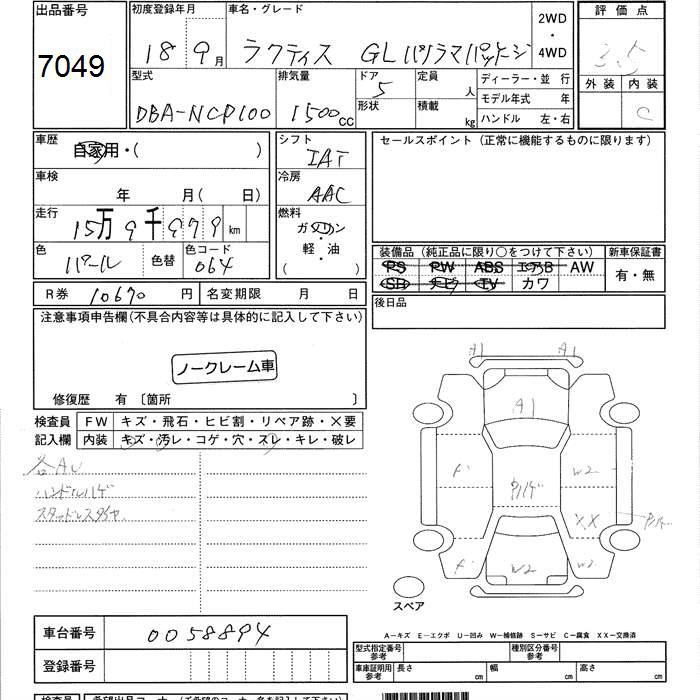 出品番号 初度登録年月 車名・グレード 2WD ・ 4WD 評価点
7049 18 9月 ラクティス GLパノラマパッケージ 3.5
型式 排気量 ドア 定員 ディーラー・並行 外装 内装
DBA-NCP100 1500cc 5 人 モデル年式 年 C
形状 積載 kg ハンドル 左・右
車歴 自家用・( ) シフト IAT セールスポイント(正常に機能するものに限ります)
車検 年 月(日) 冷房 AAC
走行 15万9千979km 燃料 ガソリン・軽・油 ( )
色 パール 色替 色コード 064
装備品(純正品に限り○をつけて下さい) 新車保証書
PS PW ABS エアB AW 有・無
SR ナビ TV カワ
R券 10670円 名変期限 月 日 後日品
注意事項申告欄(不具合内容等は具体的に記入して下さい)
ノークレーム車
修復歴 有 〔箇所 〕
検査員 FW キズ・飛石・ヒビ割・リペア跡・×要
記入欄 内装 キズ・汚レ・コゲ・穴・スレ・キレ・破レ
各AU
ハンドルハゲ
スタッドレスタイヤ
A1 A1
A1
F W2
ウハゲ
XX
F W2
スペア
車台番号 0058894
A-キズ E-エクボ U-凹み W-補修跡 S-サビ C-腐食 XX-交換済
登録番号 型式指定番号 参考 種別区分番号 参考
車庫証明用 参考 長さ cm 幅 cm 高さ cm